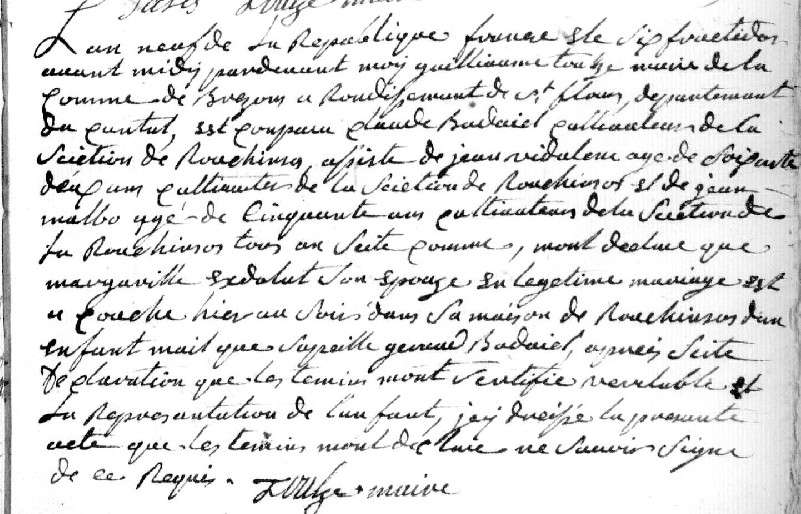 maire
L'an neuf de La Republique france et le six fructidor
avant midy pardevant moy guilliaume touzе maire de la
Comme de Brezons a Rondissement de St flour, departemant
du Cantal, est Conparu Claude Badaiel Cultivateur de la
Sciction de Rouchinsos, assiste de jean vidalenc age de Soixante
deux ans Cultivateur de la Scietion de Rouchinsos et de jean
malbo agé de Cinquante ans Cultivateur de la Scietion de
La Rouchinsos tous au Scite Comme, mont declare que
margaritte Son Epouze En legetime mariage est
a Couche hier au Soir dans Sa maison de Rouchinsos dun
Enfant mail que Sapeille geraud Badaiel, apreis Scite
Declaration que Les temins mont Sertifie veretable et
La Representation de Lanfant, jey dreisse la presante
acte que Les temins mont declare ne Savoir Signe
de ce Requis. maire